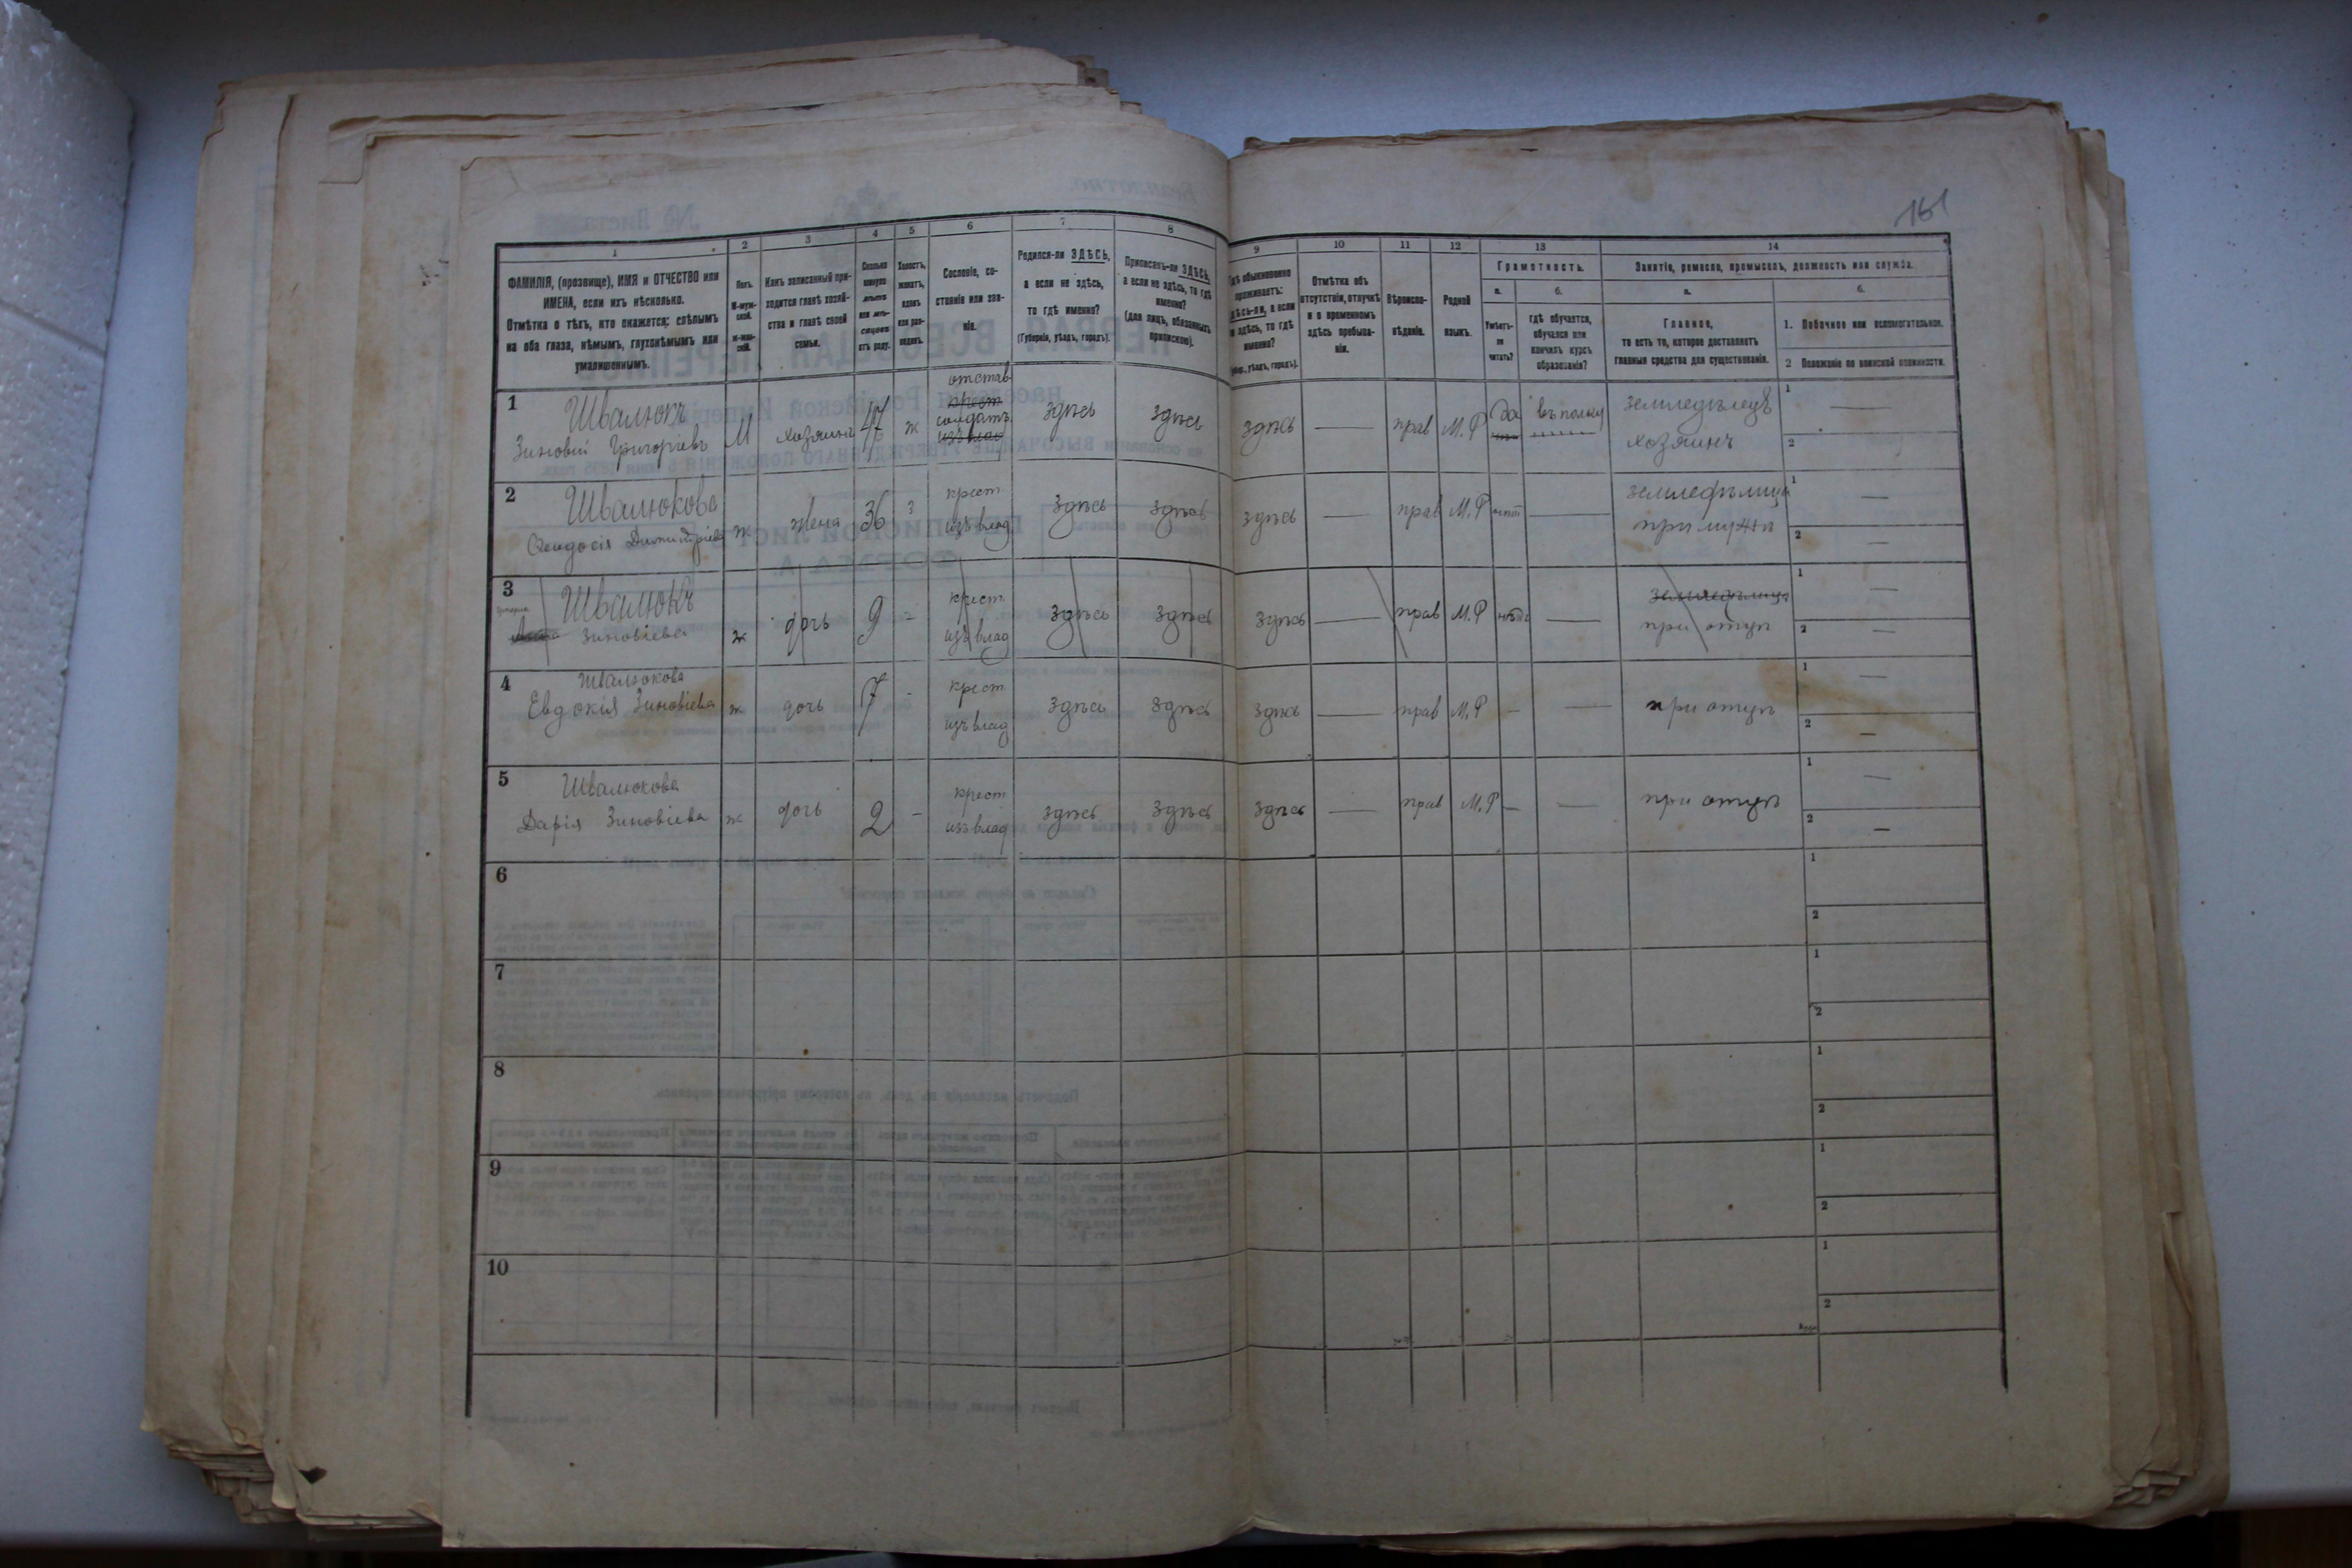 161
1 2 3 4 5 6 7 8 9 10 11 12 13 14
ФАМИЛІЯ, (прозвище), ИМЯ и ОТЧЕСТВО или
ИМЕНА, если ихъ нѣсколько.
Отмѣтка о тѣхъ, кто окажется: слѣпымъ
на оба глаза, нѣмымъ, глухонѣмымъ или
умалишеннымъ.
Полъ.
М-муж-
ской.
ж-жен-
скій.
Какъ записанный при-
ходится главѣ хозяй-
ства и главѣ своей
семьи.
Сколько
минуло
лѣтъ
или мѣ-
сяцевъ
отъ роду.
Холостъ,
женатъ,
вдовъ
или раз-
веденъ.
Сословіе, со-
стояніе или зва-
ніе.
Родился-ли ЗДѢСЬ,
а если не здѣсь,
то гдѣ именно?
(Губернія, уѣздъ, городъ).
Приписанъ-ли ЗДѢСЬ,
а если не здѣсь, то гдѣ
именно?
(для лицъ, обязанныхъ
припискою).
Гдѣ обыкновенно
проживаетъ:
здѣсь-ли, а если
не здѣсь, то гдѣ
именно?
(Губер., уѣздъ, городъ).
Отмѣтка объ
отсутствіи, отлучкѣ
и о временномъ
здѣсь пребыва-
ніи.
Вѣроиспо-
вѣданіе.
Родной
языкъ.
Грамотность.
а.
Умѣетъ-
ли
читать?
б.
гдѣ обучается,
обучался или
кончилъ курсъ
образованія?
Занятіе, ремесло, промыселъ, должность или служба.
а.
Главное,
то есть то, которое доставляетъ
главныя средства для существованія.
б.
1. Побочное или вспомогательное.
2 Положеніе по воинской повинности.
1 Швалюкъ
Зиновій Григоріевъ
М хозяинъ 47 ж
отстав
крест
солдатъ
изъ влад
здѣсь здѣсь здѣсь — прав М.Р Да въ полку
земледѣлецъ
хозяинъ
1 —
2
2 Швалюкова
Феодосія Димитріева
ж жена 36 з
крест
изъ влад
здѣсь здѣсь здѣсь — прав М.Р нѣт —
земледѣлица
при мужѣ
1 —
2 —
3 Швалюкъ
Зиновіева
ж дочь 9 -
крест
изъ влад
здѣсь здѣсь здѣсь — прав М.Р нѣтъ —
земледѣлица
при отцѣ
1 —
2 —
4 Швалюкова
Евдокія Зиновіева
ж дочь 7 -
крест
изъ влад
здѣсь здѣсь здѣсь — прав М.Р — —
при отцѣ
1 —
2 —
5 Швалюкова
Дарія Зиновіева
ж дочь 2 -
крест
изъ влад
здѣсь здѣсь здѣсь — прав М.Р — —
при отцѣ
1 —
2 —
6
1
2
7
1
2
8
1
2
9
1
2
10
1
2